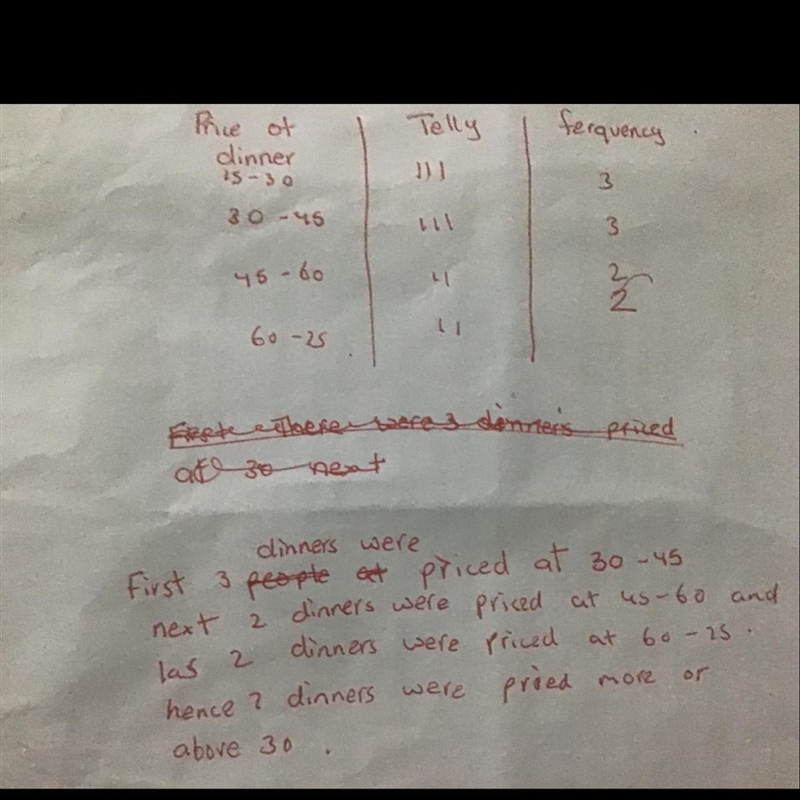 Price of Telly ferquency
dinner
15-30 ||| 3
30-45 ||| 3
45-60 || 2
2
60-25 ||
First There were 3 dinners priced
at 30 next
dinners were
First 3 people at priced at 30-45
next 2 dinners were priced at 45-60 and
las 2 dinners were priced at 60-25.
hence 7 dinners were pried more or
above 30.